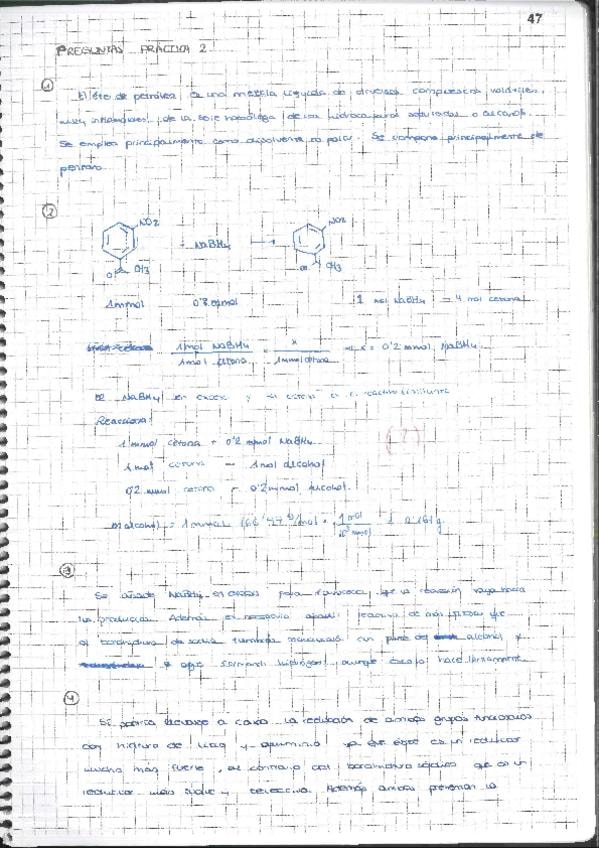 47
PREGUNTAS PRÁCTICA 2
1
El éter de petróleo es una mezcla líquida de diversos compuestos volátiles,
muy inflamables, de la serie homóloga de los hidrocarburos saturados o alcanos.
Se emplea principalmente como disolvente no polar. Se compone principalmente de
pentano.
2
NO2 NO2
+ NaBH4 →
O CH3 CH3
1 mmol 1 mol NaBH4 = 4 mol cetona
1 mol NaBH4 x
= x = 0'2 mmol NaBH4
cetona 1 mmol cetona
NaBH4 en exceso y la cetona es el reactivo limitante
Reacciona:
1 mmol cetona + 0'2 mmol NaBH4
(?)
1 mol cetona – 1 mol alcohol
0'2 mmol cetona – 0'2 mmol alcohol
m alcohol = 1 mmol · 1 mol
3
Se añade NaBH4 en exceso para que la reacción vaya hacia
los productos. Además es necesario añadir reactivo de más puesto que
el borohidruro de sodio también reaccionará con parte del alcohol y
agua formando hidrógeno, aunque esto lo hace lentamente
4
Se podría llevar a cabo la reducción de ambos grupos funcionales
con hidruro de litio y aluminio ya que éste es un reductor
mucho más fuerte, al contrario del borohidruro sódico que es un
reductor más suave y selectivo. Además ambos presentan la